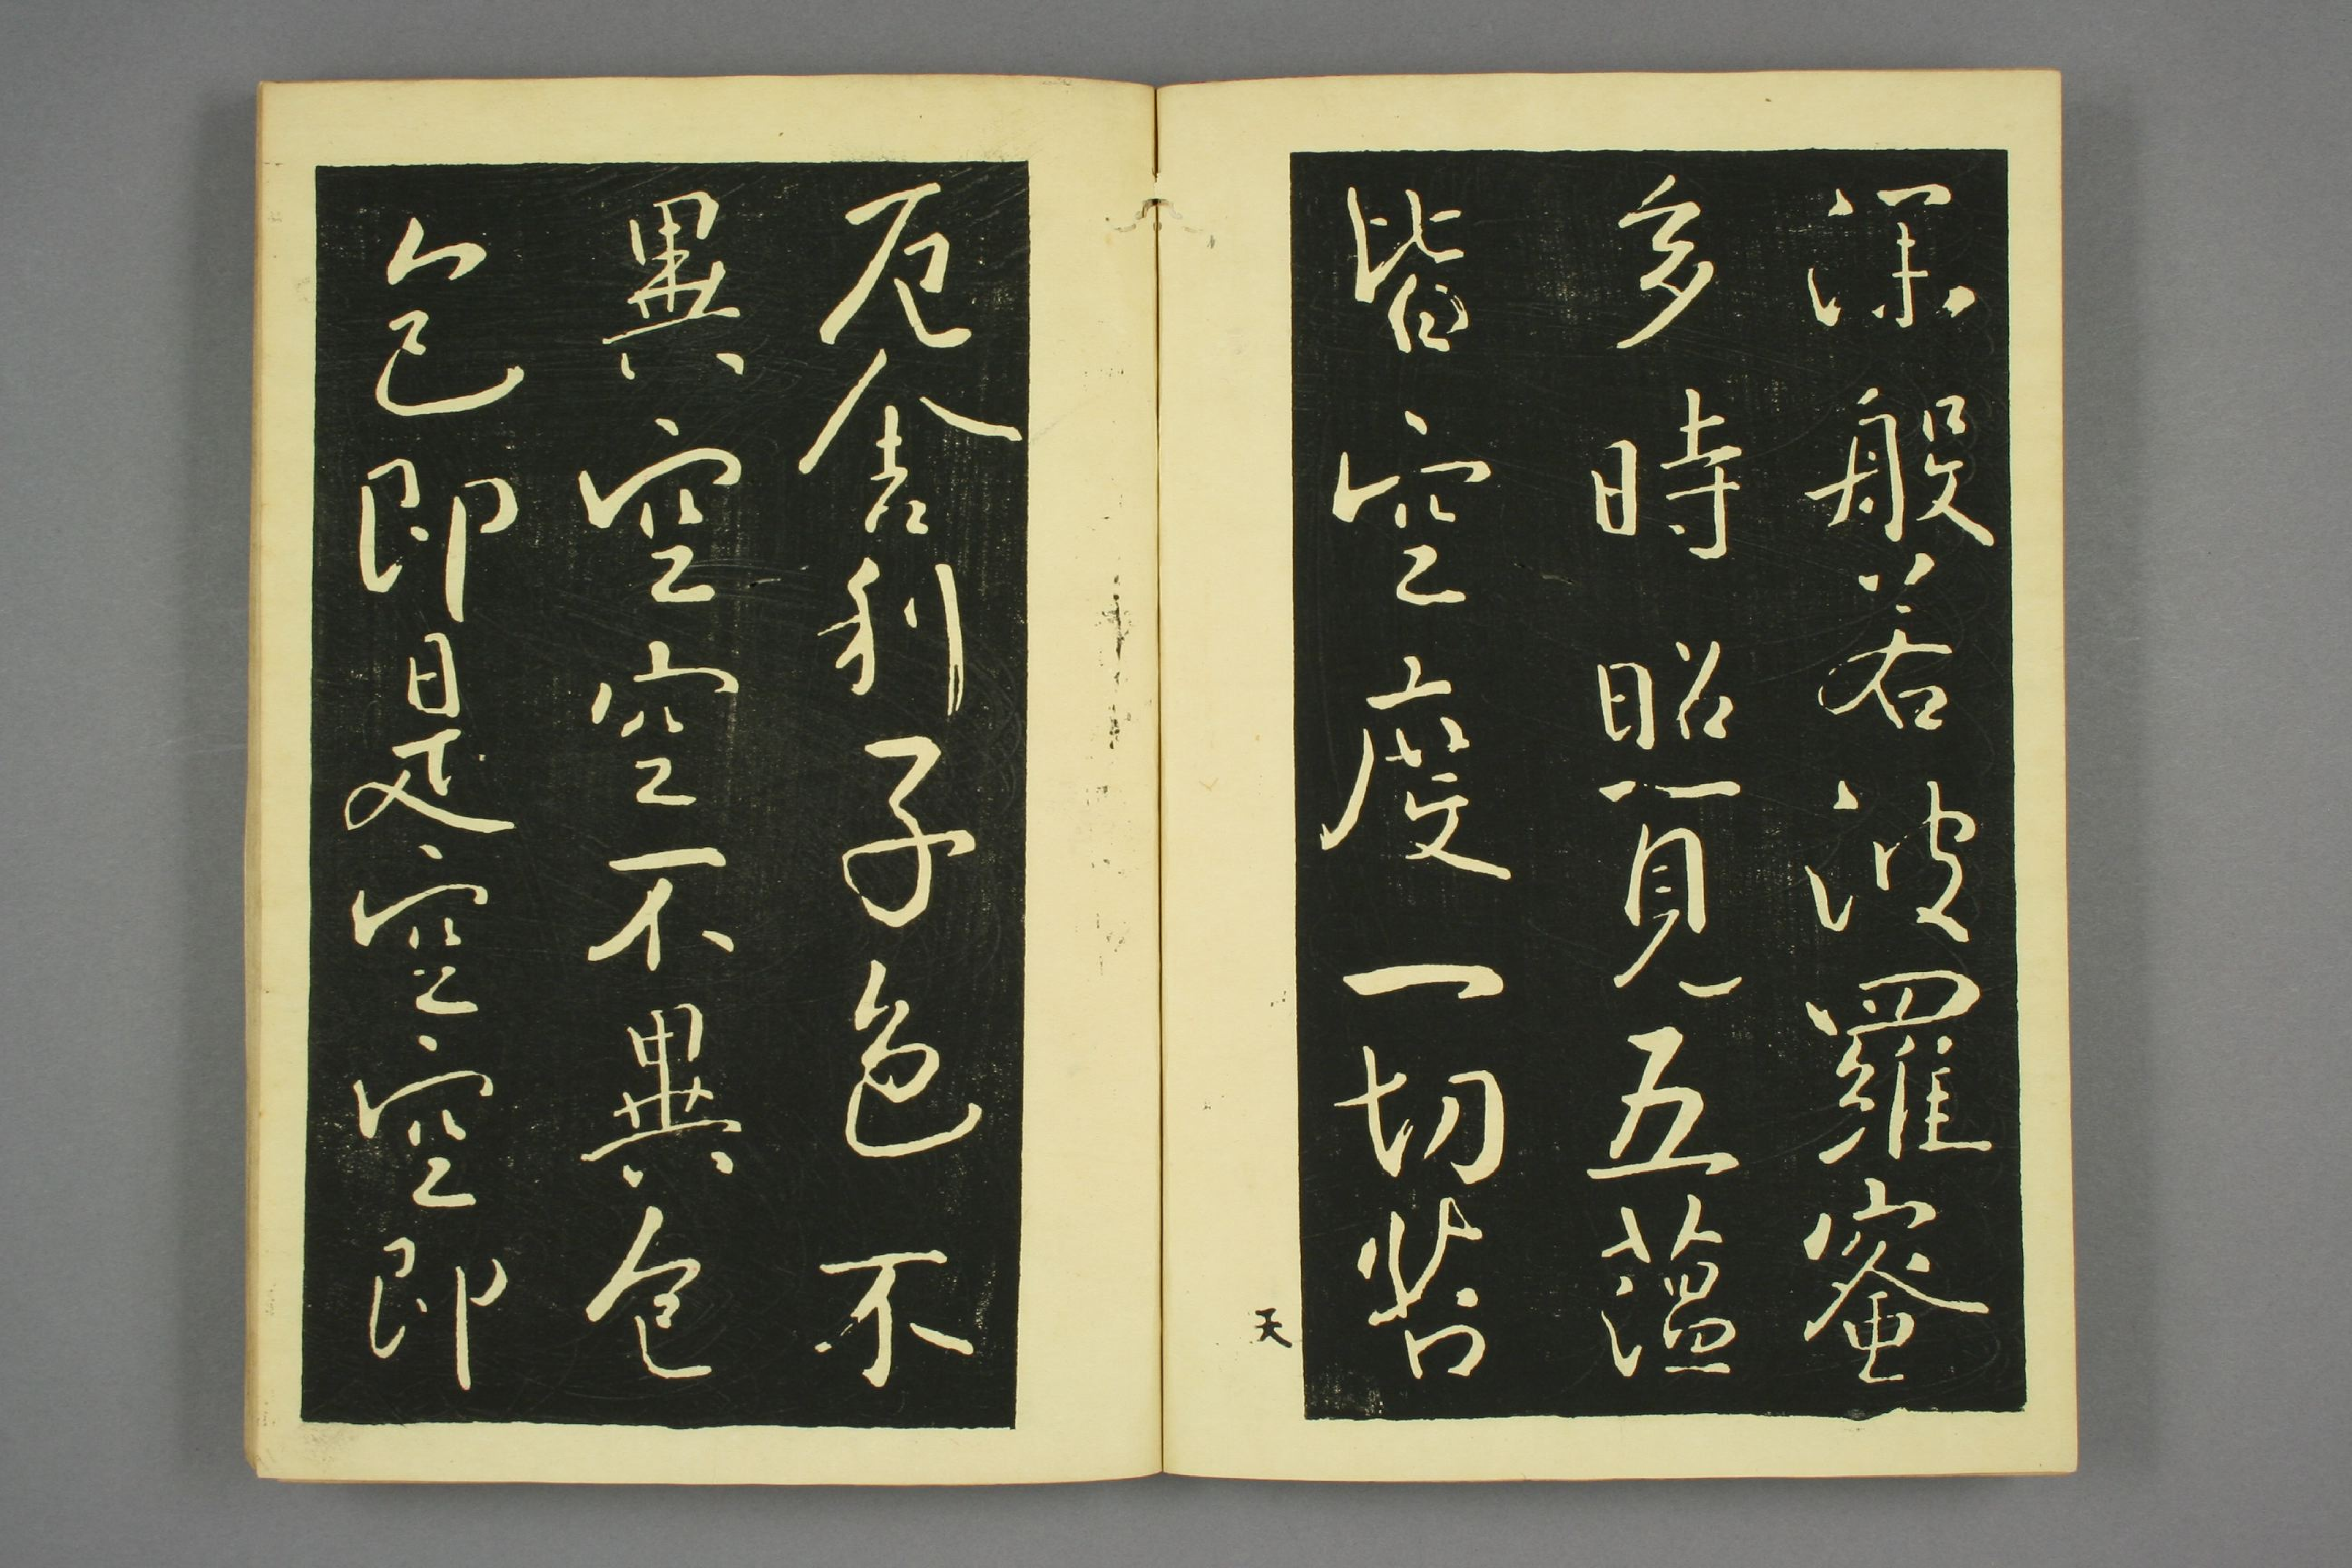 深般若波羅蜜
多時照見五薀
皆空度一切苦
天
厄舍利子色不
異空空不異色
色即是空空即